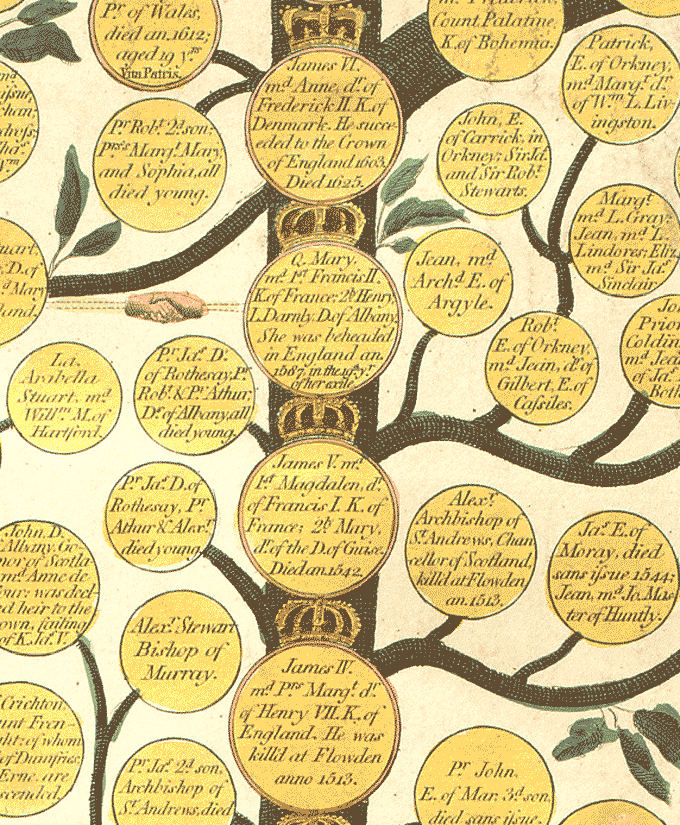 Pr. of Wales,
died an. 1612;
aged 19 yrs.
Vita Patris.
Count Palatine,
K. of Bohemia.
Patrick,
E. of Orkney,
md. Margt. dr.
of Wm. L. Liv-
ingston.
James VI.
md. Anne, dr. of
Frederick II. K. of
Denmark. He succe-
eded to the Crown
of England 1603.
Died 1625.
Pr. Robt. 2d. son;
Prss. Margt. Mary,
and Sophia, all
died young.
John, E.
of Carrick, in
Orkney; Sir Jd.
and Sir Robt.
Stewarts.
Margt.
md. L. Gray;
Jean, md. L.
Lindores; Eliz.
md. Sir Jas.
Sinclair.
Q. Mary,
md. 1st. Francis II.
K. of France; 2ly. Henry
L. Darnly, D. of Albany.
She was beheaded
in England an.
1587, in the 19th. yr.
of her exile.
Jean, md.
Archd. E. of
Argyle.
Robt.
E. of Orkney,
md. Jean, dr. of
Gilbert, E. of
Cassiles.
La.
Arabella
Stuart, md.
Willm. M. of
Hartford.
Pr. Jas. D.
of Rothesay, Pr.
Robt. & Pr. Athur,
Ds. of Albany, all
died young.
James V. md.
1st. Magdalen, dr.
of Francis I. K. of
France; 2ly. Mary,
dr. of the D. of Guise.
Died an. 1542.
Pr. Jas. D. of
Rothesay, Pr.
Athur & Alexr.
died young.
Alexr.
Archbishop of
St. Andrews, Chan
cellor of Scotland,
killd at Flowden
an. 1513.
Jas. E. of
Moray, died
sans issue 1544;
Jean, md. Jo. Mas
ter of Huntly.
John, D.
Albany, Go-
nor of Scotla
md. Anne de
our; was decl-
ed heir to the
own, failing
of K. Jas. V.
Alexr. Stewart
Bishop of
Murray.
James IV.
md. Prss. Margt. dr.
of Henry VII. K. of
England. He was
killd at Flowden
anno 1513.
Crichton
unt Fren-
ght: of whom
of Dumfries,
Erne, are
scended.
Pr. Jas. 2d. son,
Archbishop of
St. Andrews, died
Pr. John,
E. of Mar. 3d. son,
died sans issue.